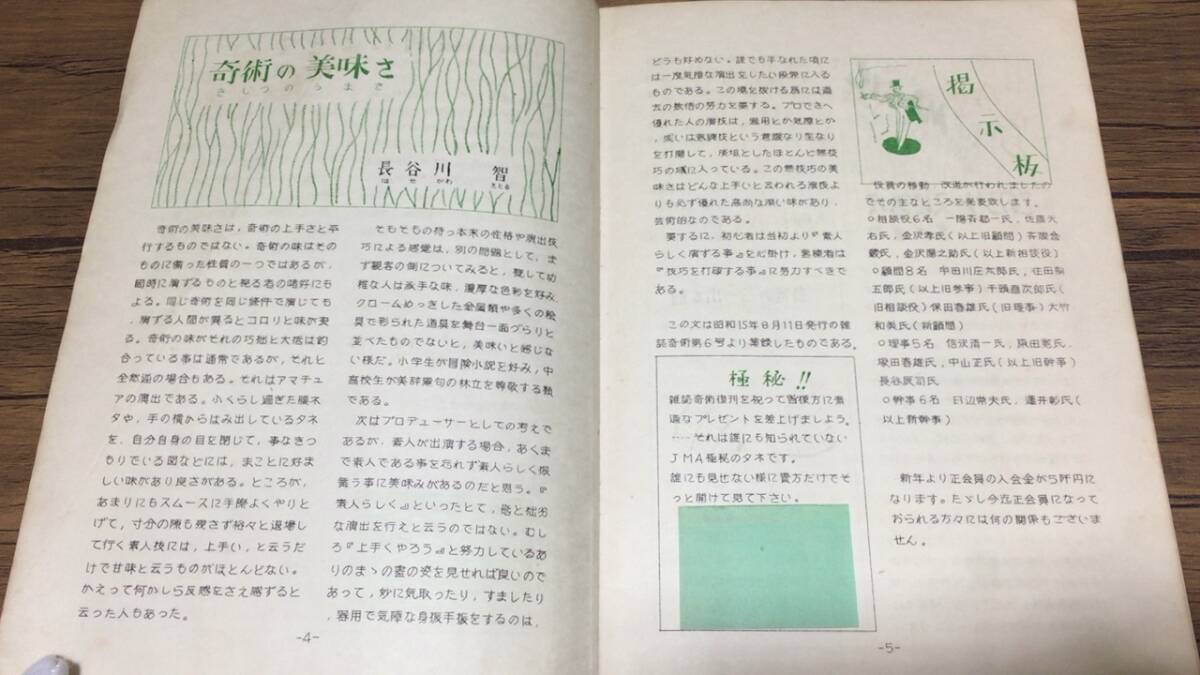 奇術の美味さ
きじつのうまさ
長谷川 智
はせがわ さとる
奇術の美味さは、奇術の上手さと平
行するものではない。奇術の味はその
ものに備った性質の一つではあるが、
同時に演ずるものと視る者の嗜好にも
よる。同じ奇術を同じ條件で演じても
、演ずる人間が異るとコロリと味が変
る。奇術の味がそれの巧拙と大低は釣
合っている事は通常であるが、それと
全然逆の場合もある。それはアマチュ
アの演出である。小くらし過ぎた種ネ
タや、手の横からはみ出しているタネ
を、自分自身の目を閉じて、事なきつ
もりでいる図などには、まことに好ま
しい味があり良さがある。ところが、
あまりにもスムースに手際よくやりと
げて、寸分の隙も残さず悠々と退場し
て行く素人技には、上手い、と云うだ
けで甘味と云うものがほとんどない。
かえって何かしら反感をさえ感ずると
云った人もあった。
そもそもの持つ本来の性格や演出技
巧による感覚は、別の問題として、ま
ず観客の側についてみると、概して幼
稚な人は派手な味、濃厚な色彩を好み、
クロームめっきした金属類や多くの絵
具で彩られた道具を舞台一面づらりと
並べたものでないと、美味いと感じな
い様だ。小学生が冒険小説を好み、中
高校生が美辞麗句の林立を尊敬する類
である。
次はプロデューサーとしての考えで
あるが、素人が出演する場合、あくま
で素人である事を忘れず素人らしく振
舞う事に美味みがあるのだと思う。『
素人らしく』といったとて、態と拙劣
な演出を行えと云うのではない。むし
ろ『上手くやろう』と努力しているあ
りのまゝの姿を見せれば良いので
あって、妙に気取ったり、すましたり
、器用で気障な身振手振をするのは、
-4-
どうも好めない。誰でも手なれた頃に
は一度気障な演出をしたい段階に入る
ものである。この境を抜ける為には過
去の数倍の努力を要する。プロでさへ
優れた人の演技は、器用とか気障とか
、或いは熟練技という意識なり生なり
を打開して、淡々としたほとんど無技
巧の域に入っている。この無技巧の美
味さはどんな上手いと云われる演技よ
りも必ず優れた高尚な深い味があり、
芸術的なのである。
要するに、初心者は当初より『素人
らしく演ずる事』を心掛け、熟練者は
『技巧を打破する事』に努力すべきで
ある。
この文は昭和15年8月11日発行の雑
誌奇術第6号より集録したものである。
極秘!!
雑誌奇術復刊を祝って皆様方に素
適なプレゼントを差上げましょう。
……それは誰にも知られていない
JMA極秘のタネです。
誰にも見せない様に貴方だけでそ
っと開けて見て下さい。
掲示板
役員の移動、改選が行われましたの
でその主なところを発表致します。
○相談役6名 一陽斉都一氏、佐藤大
右氏、金沢孝氏(以上旧顧問)斉藤金
蔵氏、金沢陽之助氏(以上新相談役)
○顧問8名 宇田川庄太郎氏、住田
五郎氏(以上旧参事)千頭直次郎氏(
旧相談役)保田春雄氏(旧理事)大竹
和美氏(新顧問)
○理事5名 信沢浩一氏、浜田恵氏、
塚田春雄氏、中山正氏(以上旧幹事)
長谷辰司氏
○幹事6名 日辺県夫氏、蓬井彰氏(
以上新幹事)
新年より正会員の入会金が5阡円に
なります。たゞし今迄正会員になって
おられる方々には何の関係もございま
せん。
-5-